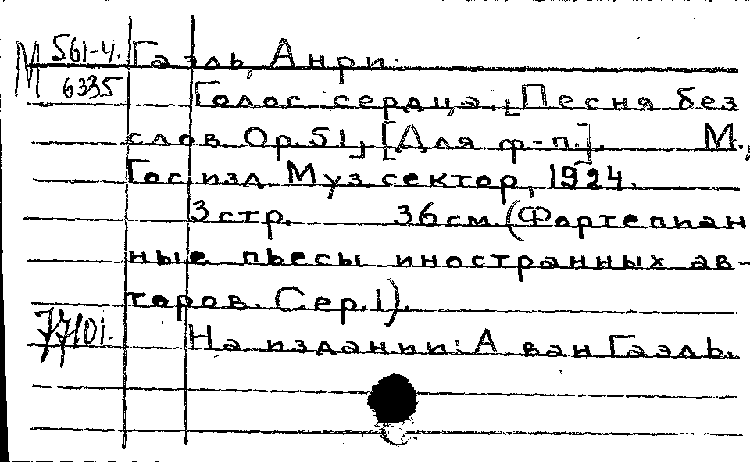 М 561-4. Гаэль, Анри.
6335
Голос сердца. [Песня без
слов. Ор. 51]. [Для ф-п.]. М.,
Гос. изд. Муз. сектор, 1924.
3 стр. 36 см. (Фортепиан-
ные пьесы иностранных ав-
торов. Сер. 1).
77101. На издании: А. ван Гаэль.